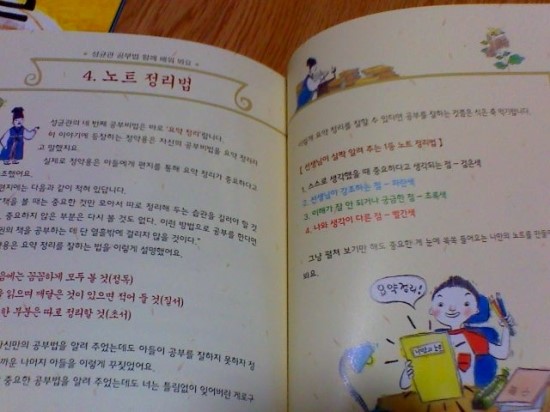 성균관 공부법 함께 배워 봐요
4. 노트 정리법
성균관의 네 번째 공부비법은 바로 '요약 정리'랍니다.
이 이야기에 등장하는 정약용은 자신의 공부비법을 요약 정리라
고 말했지요.
실제로 정약용은 아들에게 편지를 통해 요약 정리가 중요하다고
조했어요.
편지에는 다음과 같이 적혀 있답니다.
"책을 볼 때는 중요한 것만 모아서 따로 정리해 두는 습관을 길러야 할 것
중요하지 않은 부분은 다시 볼 것도 없다. 이런 방법으로 공부를 한다면
권의 책을 공부하는 데 단 열흘밖에 걸리지 않을 것이다."
용은 요약 정리를 잘하는 법을 이렇게 설명했어요.
음에는 꼼꼼하게 모두 볼 것(정독)
을 읽으며 깨달은 것이 있으면 적어 둘 것(질서)
한 부분은 따로 정리할 것(초서)
자신만의 공부법을 알려 주었는데도 아들이 공부를 잘하지 못하자 정
까운 나머지 아들을 이렇게 꾸짖었어요.
중요한 공부법을 알려 주었는데도 너는 틀림없이 잊어버린 게로구
이렇게 요약 정리를 잘할 수 있다면 공부를 잘하는 것쯤은 식은 죽 먹기랍니다.
[ 선생님이 살짝 알려 주는 1등 노트 정리법 ]
1. 스스로 생각했을 때 중요하다고 생각되는 점 – 검은색
2. 선생님이 강조하는 점 – 파란색
3. 이해가 잘 안 되거나 궁금한 점 – 초록색
4. 나와 생각이 다른 점 – 빨간색
그냥 펼쳐 보기만 해도 중요한 게 눈에 쏙쏙 들어오는 나만의 노트를 만들어
봐요.
요약 정리!